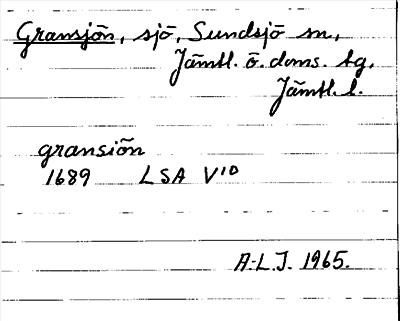 Gransjön, sjö, Sundsjö sn,
Jämtl. ö. doms. tg,
Jämtl. l.
gransiön
1689 LSA V10
A-L.J. 1965.